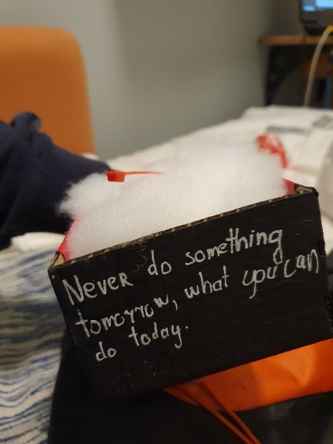 Never do something
tomorrow, what you can
do today.